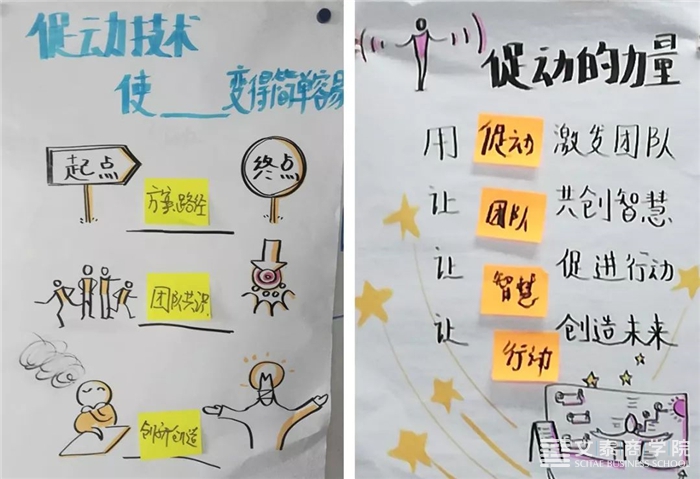 促动技术
使___变得简单容易
起点
终点
方案路径
团队共识
创新创造
促动的力量
用 促动 激发团队
让 团队 共创智慧
让 智慧 促进行动
让 行动 创造未来
文泰商学院
SCHAE BUSINESS SCHOOL